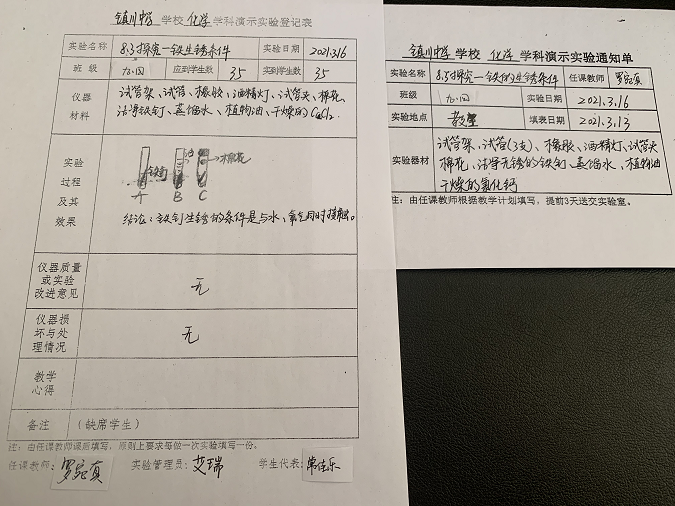 镇川中学 学校 化学 学科演示实验登记表
实验名称 8.3探究一铁生锈条件 实验日期 2021.3.16
班 级 九.四 应到学生数 35 实到学生数 35
仪器 材料 试管架、试管、橡胶、酒精灯、试管夹、棉花、
洁净铁钉、蒸馏水、植物油、干燥的CaCl2.
实验
过程
及其
效果
铁钉 油 →棉花
A B C
结论:铁钉生锈的条件是与水、氧气同时接触。
仪器质量
或实验
改进意见
无
仪器损
坏与处
理情况
无
教学
心得
备注 (缺席学生)
注:由任课教师课后填写,原则上要求每做一次实验填写一份。
任课教师: 罗宛真 实验管理员: 艾瑞 学生代表: 常佳乐
镇川中学 学校 化学 学科演示实验通知单
实验名称 8.3探究一铁的生锈条件 任课教师 罗宛真
班级 九.四 实验日期 2021.3.16
实验地点 教室 填表日期 2021.3.13
实验器材 试管架、试管(3支)、橡胶、酒精灯、试管夹
棉花、洁净无锈的铁钉、蒸馏水、植物油
干燥的氯化钙
注:由任课教师根据教学计划填写,提前3天送交实验室。